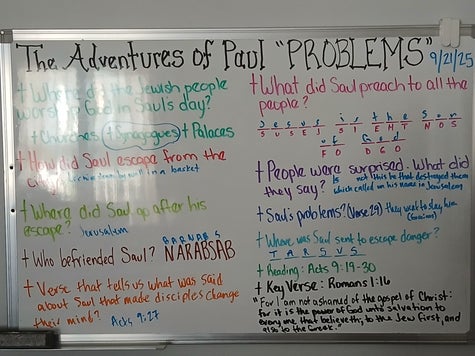 The Adventures of Paul "PROBLEMS" 9/21/25
† Where did the Jewish people
worship God in Saul's day?
† Churches † Synagogues † Palaces
† How did Saul escape from the
city? let him down by wall in a basket
† Where did Saul go after his
escape? Jerusalem
BARNABAS
† Who befriended Saul? NARABSAB
† Verse that tells us what was said
about Saul that made disciples change
their mind? Acts 9:27
† What did Saul preach to all the
people?
Jesus is the Son
SUSEJ SI EHT NOS
of God
FO DGO
† People were surprised. What did
they say? Is not this he that destroyed them
which called on his name in Jerusalem
† Saul's problems? (Verse 29) they went to slay him
(Grecians)
† Where was Saul sent to escape danger?
TARSUS
† Reading: Acts 9:19-30
† Key Verse: Romans 1:16
"For I am not ashamed of the gospel of Christ:
for it is the power of God unto salvation to
every one that believeth; to the Jew first, and
also to the Greek."